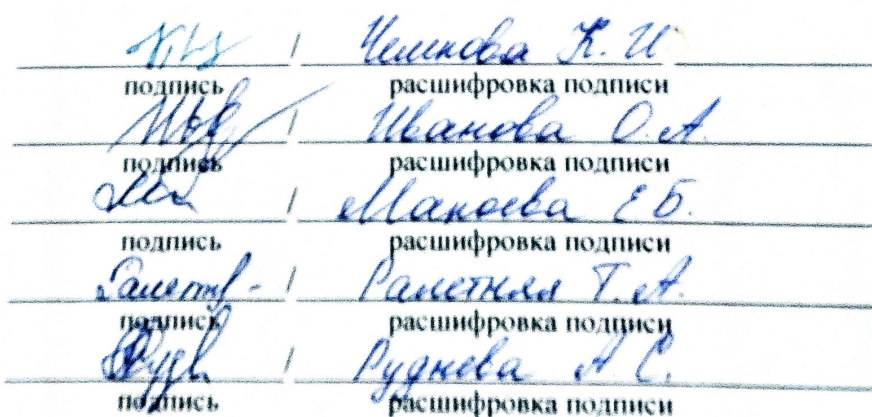 / Чешкова К. И
подпись расшифровка подписи
Ив / Иванова О.А.
подпись расшифровка подписи
/ Манаева Е Б.
подпись расшифровка подписи
Ралетн - / Ралетняя Т.А.
подпись расшифровка подписи
Рудн / Руднева А С.
подпись расшифровка подписи